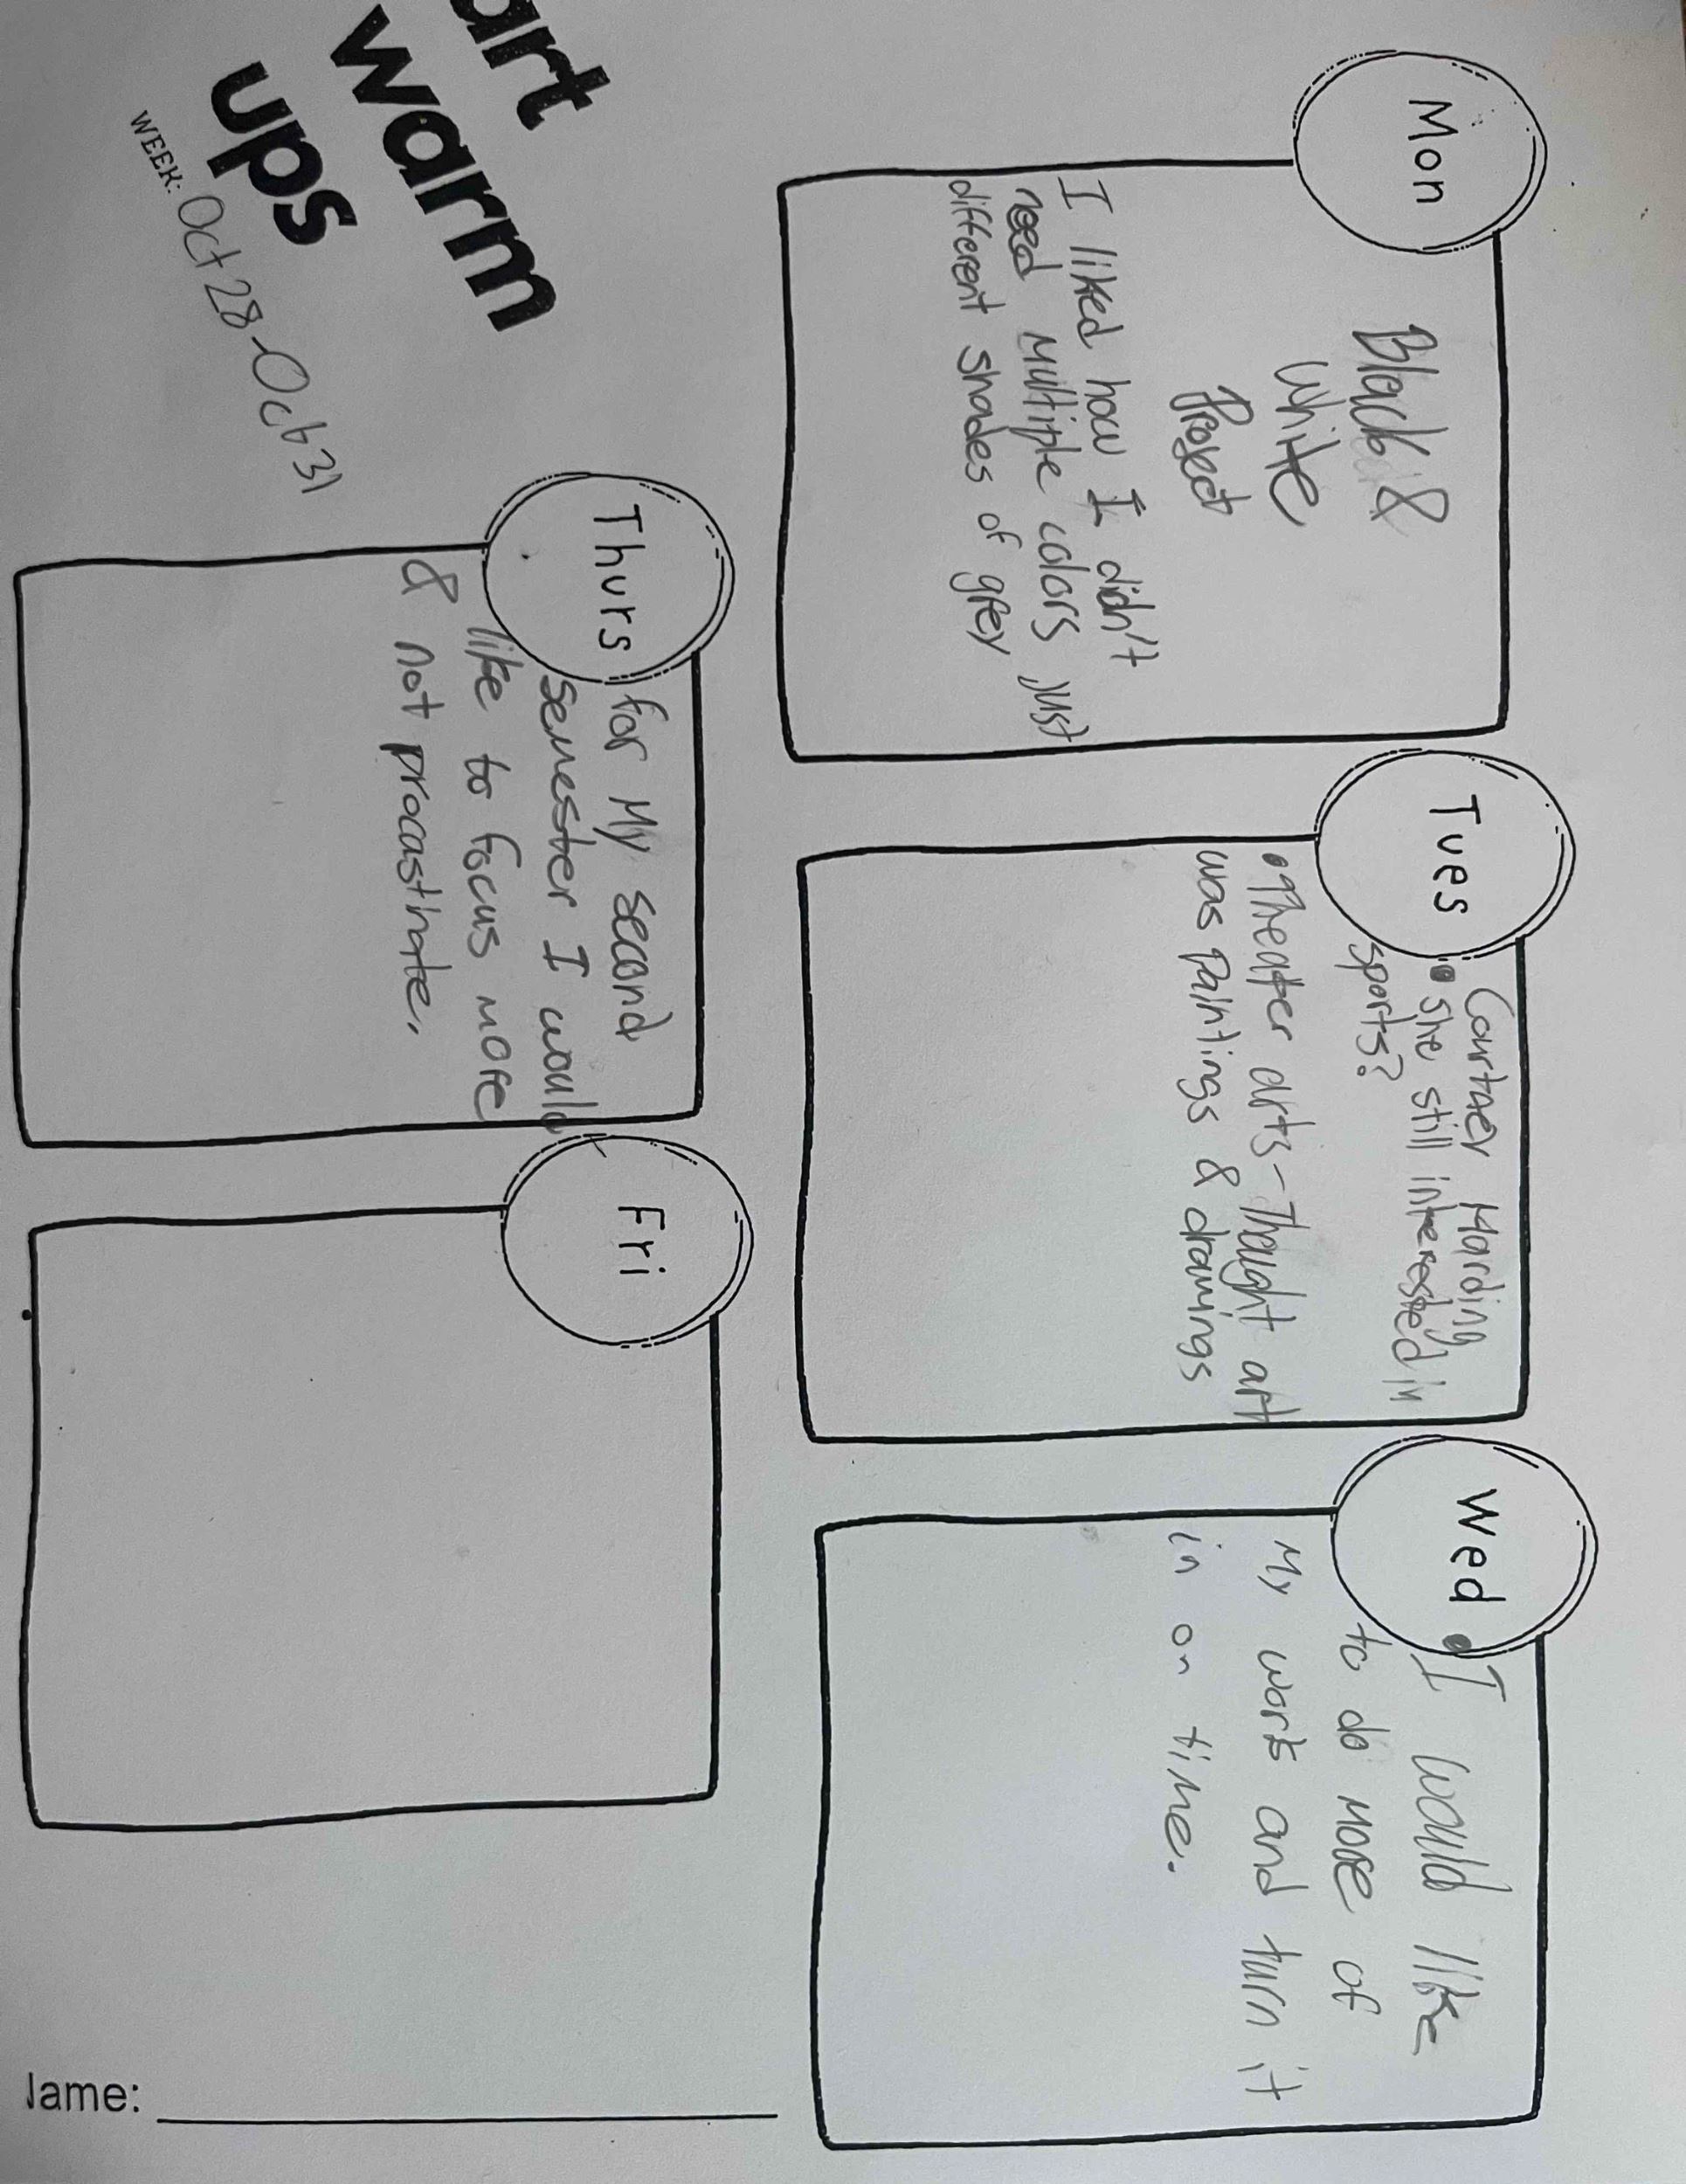 art
warm
ups
WEEK: Oct 28 - Oct 31
Mon
Black &
white
Project
I liked how I didn't
need multiple colors just
different shades of grey
Tues
Courtney Harding
• she still interested in
sports?
• Theater arts - Thought art
was Paintings & drawings
Wed
• I would like
to do more of
My work and turn it
in on time.
Thurs
for My second
semester I would
like to focus more
& not procasthate.
Fri
lame: